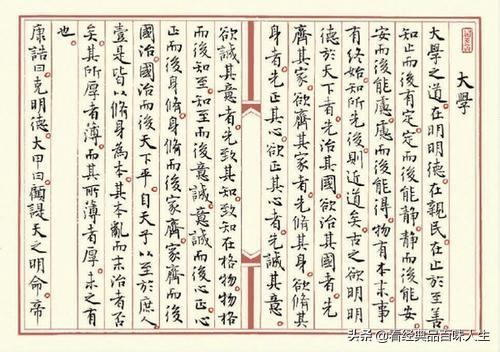 大學
大學之道在明明德在親民在止於至善
知止而後有定定而後能靜靜而後能安
安而後能慮慮而後能得物有本末事
有終始知所先後則近道矣古之欲明明
德於天下者先治其國欲治其國者先
齊其家欲齊其家者先脩其身欲脩其
身者先正其心欲正其心者先誠其意
欲誠其意者先致其知致知在格物物格
而後知至知至而後意誠意誠而後心正心
正而後身脩身脩而後家齊家齊而後
國治國治而後天下平自天子以至於庶人
壹是皆以脩身為本其本亂而末治者否
矣其所厚者薄而其所薄者厚未之有
也
康誥曰克明德大甲曰顧諟天之明命帝
头条 @看经典品百味人生